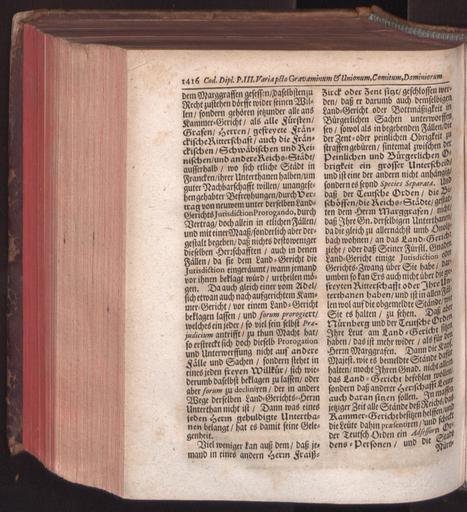 1416 Cod. Dipl. P. III. Varia pcto Gravaminum & Unionum, Comitum, Dominiorum
dem Marggraffen gesessen / daselbsten zu
Recht zustehen dörffe wider seinen Wil-
len / sondern gehören jetzunder alle ans
Kammer-Gericht / als alle Fürsten /
Grafen / Herren / gefreyete Frän-
ckische Ritterschafft / auch die Frän-
ckischen / Schwäbischen und Rei-
nischen / und andere Reichs-Städt /
ausserhalb / wo sich etliche Städt in
Francken / ihrer Unterthanen halben / um
guter Nachbarschafft willen / unangese-
hen gehabter Befreyhungen / durch Ver-
trag von neuwem unter derselben Land-
Gerichts Jurisdiction Prorogando, durch
Vertrag / doch allein in etlichen Fällen /
und mit einer Maaß / sonderlich aber der-
gestalt begeben / daß nichts destoweniger
dieselben Herrschafften / auch in denen
Fällen / da sie dem Land-Gericht die
Jurisdiction eingeräumt / wann jemand
vor ihnen beklagt würd / urtheilen mö-
gen. Da auch gleich einer vom Adel /
sich etwan auch nach aufgerichtem Kam-
mer-Gericht / vor einem Land-Gericht
beklagen lassen / und forum prorogirt /
welches ein jeder / so viel sein selbst Præ-
judicium antrifft / zu thun Macht hat /
so erstreckt sich doch dieselb Prorogation
und Unterwerffung nicht auf andere
Fälle und Sachen / sondern stehet in
eines jeden freyen Willkür / sich wie-
derumb daselbst beklagen zu lassen / oder
aber forum zu decliniren / der in andere
Wege derselben Land-Gerichts-Herrn
Unterthan nicht ist / Dann was eines
jeden Herrn gehuldigte Untertha-
nen belangt / hat es damit seine Gele-
genheit.
Viel weniger kan auß dem / daß je-
mand in eines andern Herrn Fraiß-
Zirck oder Zent sitzt / geschlossen wer-
den / daß er darumb auch demselbigen
Land-Gericht oder Bottmäßigkeit in
Bürgerlichen Sachen unterworffen
sey / sowol als in begebenden Fällen / die
der Zent- oder peinlichen Obrigkeit zu
straffen gebüren / sintemal zwischen der
Peinlichen und Bürgerlichen O-
brigkeit ein grosser Unterscheid /
und ist eine der andern nicht anhängig /
sondern es seynd Species Separatæ. Und
daß der Teutsche Orden / die Bi-
schöffen / die Reichs-Städte / gestat-
ten dem Herrn Marggrafen / nicht /
daß Ihr Gn. derselbigen Unterthanen /
da die gleich zu allernächst umb Onolz-
bach wohnen / an das Land-Gericht
ziehe / oder daß Seiner Fürstl. Gnaden
Land-Gericht einige Jurisdiction oder
Gerichts-Zwang über Sie habe / dar-
umben so kan Ers auch nicht über die ge-
freyten Ritterschafft oder Ihre Un-
terthanen haben / und ist in allen Fäl-
len wol auf die obgemeldte Stände / wie
Sie es halten / zu sehen. Daß aber
Nürnberg und der Teutsche Orden
Ihre Leut am Land-Gericht sitzen
haben / das ist mehr wider / als für den
Herrn Marggrafen. Dann die Kays.
Majest. wie es bemeldte Stände dafür
halten / mocht Ihrem Gnad. nicht allein
das Land-Gericht besetzen wollen /
sondern daß anderer Herrschafft Leute
auch daran sitzen sollen. In massen
jetziger Zeit alle Stände deß Reichs / das
Kammer-Gericht besitzen helffen / und
die Leute dahin præsentiren / und schickt
der Teutsch Orden ein Assessorn Or-
dens-Personen / und die Stadt
Nürn-